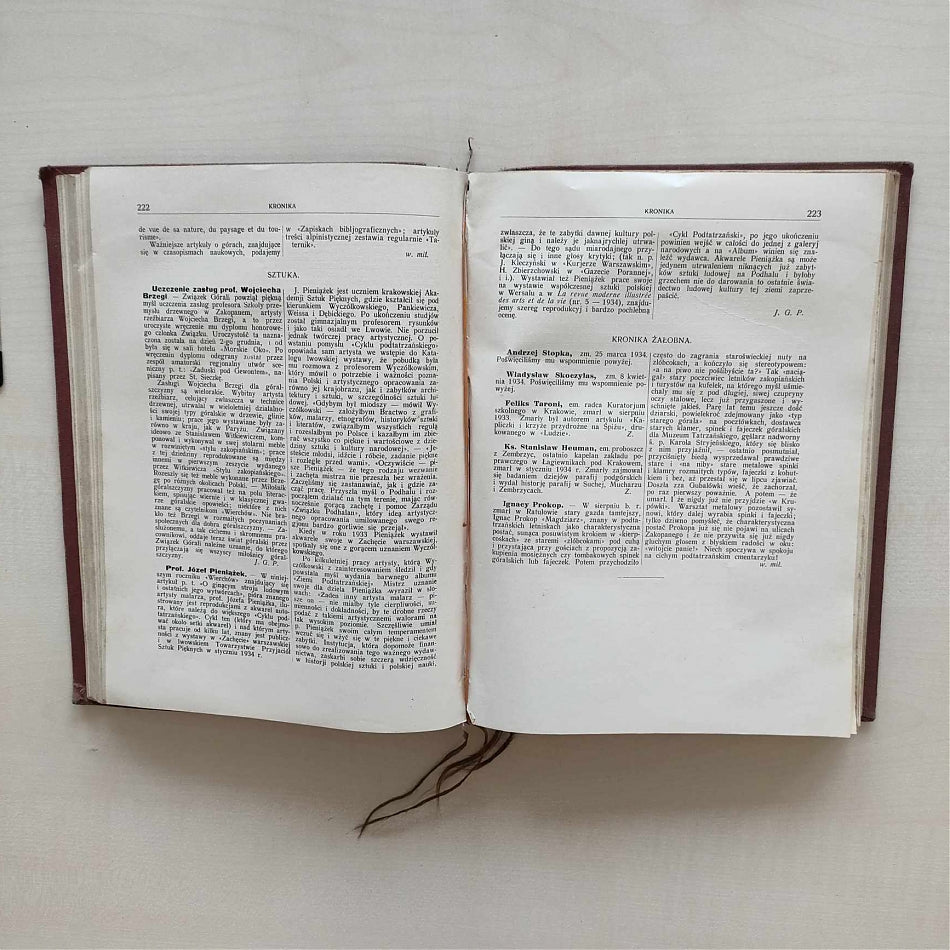 222
KRONIKA
de vue de sa nature, du paysage et du tou-
risme».
Ważniejsze artykuły o górach, znajdujące
się w czasopismach naukowych, podajemy
w «Zapiskach bibljograficznych»; artykuły
treści alpinistycznej zestawia regularnie «Ta-
ternik».
w. mil.
SZTUKA.
Uczczenie zasług prof. Wojciecha
Brzegi — Związek Górali powziął piękną
myśl uczczenia zasług profesora Szkoły prze-
mysłu drzewnego w Zakopanem, artysty
rzeźbiarza Wojciecha Brzegi, a to przez
uroczyste wręczenie mu dyplomu honorowe-
go członka Związku. Uroczystość ta nazna-
czona została na dzień 2-go grudnia, i od
była się w sali hotelu «Morskie Oko». Po
wręczeniu dyplomu odegrany został przez
zespół amatorski regjonalny utwór sce-
niczny p. t.: «Zaduski pod Gewontem», na-
pisany przez St. Sieczkę.
Zasługi Wojciecha Brzegi dla góral-
szczyzny są wielorakie. Wybitny artysta
rzeźbiarz, celujący zwłaszcza w technice
drzewnej, utrwalał w wieloletniej działalno-
ści swojej typy góralskie w drzewie, glinie
i kamieniu; prace jego wystawiane były za-
równo w kraju, jak w Paryżu. Związany
ideowo ze Stanisławem Witkiewiczem, kom-
ponował i wykonywał w swej stolarni meble
w rozwiniętym «stylu zakopiańskim»; prace
z tej dziedziny reprodukowane są między
innemi w pierwszym zeszycie wydanego
przez Witkiewicza «Stylu zakopiańskiego».
Rozeszły się też meble wykonane przez Brze-
gę po różnych okolicach Polski. — Miłośnik
góralszczyzny pracował też na polu literac-
kiem, spisując wiernie i w klasycznej gwa-
rze góralskie opowieści, niektóre z nich
znane są czytelnikom «Wierchów». Nie bra-
kło też Brzegi w rozmaitych poczynaniach
społecznych dla dobra góralszczyzny. — Za-
służonemu, a tak cichemu i skromnemu pra-
cownikowi, oddaje teraz świat góralski przez
Związek Górali należne uznanie, do którego
przyłączają się wszyscy miłośnicy góral-
szczyzny.
J. G. P.
Prof. Józef Pieniążek. — W niniej-
szym roczniku «Wierchów» znajdujący się
artykuł p. t. «O ginącym stroju ludowym
i ostatnich jego wytwórcach», pióra znanego
artysty malarza, prof. Józefa Pieniążka, ilu-
strowany jest reprodukcjami z akwarel auto-
ra, które należą do większego «Cyklu pod-
tatrzańskiego». Cykl ten (który ma obejmo-
wać około setki akwarel) i nad którym arty-
sta pracuje od kilku lat, znany jest publicz-
ności z wystawy w «Zachęcie» warszawskiej
i w lwowskiem Towarzystwie Przyjaciół
Sztuk Pięknych w styczniu 1934 r.
J. Pieniążek jest uczniem krakowskiej Aka-
demji Sztuk Pięknych, gdzie kształcił się pod
kierunkiem Wyczółkowskiego, Pankiewicza,
Weissa i Dębickiego. Po ukończeniu studjów
został gimnazjalnym profesorem rysunków
i jako taki osiadł we Lwowie. Nie porzucił
jednak twórczej pracy artystycznej. O po-
wstaniu pomysłu «Cyklu podtatrzańskiego»
opowiada sam artysta we wstępie do Kata-
logu lwowskiej wystawy, że pobudką była
mu rozmowa z profesorem Wyczółkowskim,
który mówił o potrzebie i ważności pozna-
nia Polski i artystycznego opracowania za-
równo jej krajobrazu, jak i zabytków archi-
tektury i sztuki, w szczególności sztuki lu-
dowej. «Gdybym był młodszy — mówił Wy-
czółkowski — założyłbym Bractwo z grafi-
ków, malarzy, etnografów, historyków sztuki
i literatów, związałbym wszystkich regułą
i rozesłałbym po Polsce i kazałbym im zbie-
rać wszystko co piękne i wartościowe z dzie-
dziny sztuki i kultury narodowej». — «Je-
steście młodzi, idźcie i róbcie, zadanie piękne
i rozległe przed wami». «Oczywiście — pi-
sze Pieniążek — że tego rodzaju wezwanie
i zachęta mistrza nie przeszła bez wrażenia.
Zacząłem się zastanawiać, jak i gdzie za-
cząć pracę. Przyszła myśl o Podhalu i roz-
począłem działać na tym terenie, mając rów-
nocześnie gorącą zachętę i pomoc Zarządu
«Związku Podhalan», który ideą artystycz-
nego opracowania umiłowanego swego re-
gjonu bardzo gorliwie się przejął».
Kiedy w roku 1933 Pieniążek wystawił
akwarele swoje w Zachęcie warszawskiej,
spotkały się one z gorącem uznaniem Wyczół-
kowskiego.
Po kilkuletniej pracy artysty, którą Wy-
czółkowski z zainteresowaniem śledził i gdy
powstała myśl wydania barwnego albumu
«Ziemi Podtatrzańskiej» Mistrz uznanie
swoje dla dzieła Pieniążka wyraził w sło-
wach: «Żaden inny artysta malarz — pi-
sze on — nie miałby tyle cierpliwości, su-
mienności i dokładności, by te drobne rzeczy
podać z takiemi artystycznemi walorami na
tak wysokim poziomie. Szczęśliwie umiał
p. Pieniążek swoim całym temperamentem
wczuć się i wżyć się w te piękne i ciekawe
zabytki. Instytucja, która dopomoże finan-
sowo do zrealizowania tego ważnego wydaw-
nictwa, zaskarbi sobie szczerą wdzięczność
w historji polskiej sztuki i polskiej nauki,
KRONIKA
223
zwłaszcza, że te zabytki dawnej kultury pol-
skiej giną i należy je jaknajrychlej utrwa-
lić». — Do tego sądu miarodajnego przy-
łączają się i inne głosy krytyki; (tak n. p.
J. Kleczyński w «Kurjerze Warszawskim»,
H. Zbierzchowski w «Gazecie Porannej»,
i i.). Wystawiał też Pieniążek prace swoje
na wystawie współczesnej grafiki polskiej
w Wersalu a w La revue moderne illustrée
des arts et de la vie (nr. 5 — 1934), znajdu-
jemy szereg reprodukcyj i bardzo pochlebną
ocenę.
«Cykl Podtatrzański», po jego ukończeniu
powinien wejść w całości do jednej z galeryj
narodowych a na «Album» winien się zna-
leźć wydawca. Akwarele Pieniążka są może
jedynem utrwaleniem niknących już zabyt-
ków sztuki ludowej na Podhalu i byłoby
grzechem nie do darowania to ostatnie świa-
dectwo ludowej kultury tej ziemi zaprze-
paścić.
J. G. P.
KRONIKA ŻAŁOBNA.
Andrzej Stopka, zm. 25 marca 1934.
Poświęciliśmy mu wspomnienie powyżej.
Władysław Skoczylas, zm. 8 kwiet-
nia 1934. Poświęciliśmy mu wspomnienie po-
wyżej.
Feliks Taroni, em. radca Kuratorjum
szkolnego w Krakowie, zmarł w sierpniu
1933. Zmarły był autorem artykułu «Ka-
pliczki i krzyże przydrożne na Spiżu», dru-
kowanego w «Ludzie».
Z.
Ks. Stanisław Heuman, em. proboszcz
z Zembrzyc, ostatnio kapelan zakładu po-
prawczego w Łagiewnikach pod Krakowem,
zmarł w styczniu 1934 r. Zmarły zajmował
się badaniem dziejów parafij podgórskich
i wydał historję parafij w Suchej, Mucharzu
i Zembrzycach.
Z.
Ignacy Prokop. — W sierpniu b. r.
zmarł w Ratułowie stary gazda tamtejszy,
Ignac Prokop «Magdziarz», znany w podta-
trzańskich letniskach jako charakterystyczna
postać, sunąca posuwistym krokiem w «kierp-
coskach» ze staremi «złóbcokami» pod cuhą
i przystająca przy gościach z propozycją za-
kupienia mosiężnych czy tombakowych spinek
góralskich lub fajeczek. Potem przychodziło
często do zagrania staroświeckiej nuty na
złóbcokach a kończyło się stereotypowem:
«a na piwo nie pośliibyście ta?» Tak «nacią-
gał» stary poczciwiec letników zakopiańskich
i turystów na kufelek, na którego myśl uśmie-
chały mu się z pod długiej, siwej czupryny
oczy stalowe, lecz już przygaszone i wy-
schnięte jakieś. Parę lat temu jeszcze dość
dziarski, powielokroć zdejmowany jako «typ
starego górala» na pocztówkach, dostawca
starych klamer, spinek i fajeczek góralskich
dla Muzeum Tatrzańskiego, gęślarz nadworny
ś. p. Karola Stryjeńskiego, który się blisko
z nim przyjaźnił, — ostatnio posmutniał,
przyciśnięty biedą wysprzedawał prawdziwe
stare i «na niby» stare metalowe spinki
i klamry rozmaitych typów, fajeczki z kobut-
kiem i bez, aż przestał się w lipcu zjawiać.
Doszła zza Gubałówki wieść, że zachorzał,
po raz pierwszy poważnie. A potem — że
umarł. I że nigdy już nie przyjdzie «w Kru-
pówki». Warsztat metalowy pozostawił sy-
nowi, który dalej wyrabia spinki i fajeczki;
tylko dziwno pomyśleć, że charakterystyczna
postać Prokopa już się nie pojawi na ulicach
Zakopanego i że nie przywita się już nigdy
głuchym głosem z błyskiem radości w oku:
«witojcie panie!» Niech spoczywa w spokoju
na cichym podtatrzańskim cmentarzyku!
w. mil.